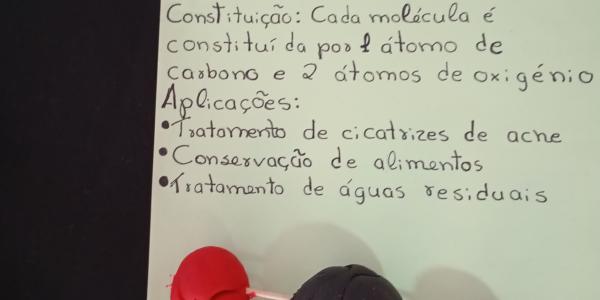 Constituição: Cada molécula é
constituída por 1 átomo de
carbono e 2 átomos de oxigénio
Aplicações:
•Tratamento de cicatrizes de acne
•Conservação de alimentos
•Tratamento de águas residuais